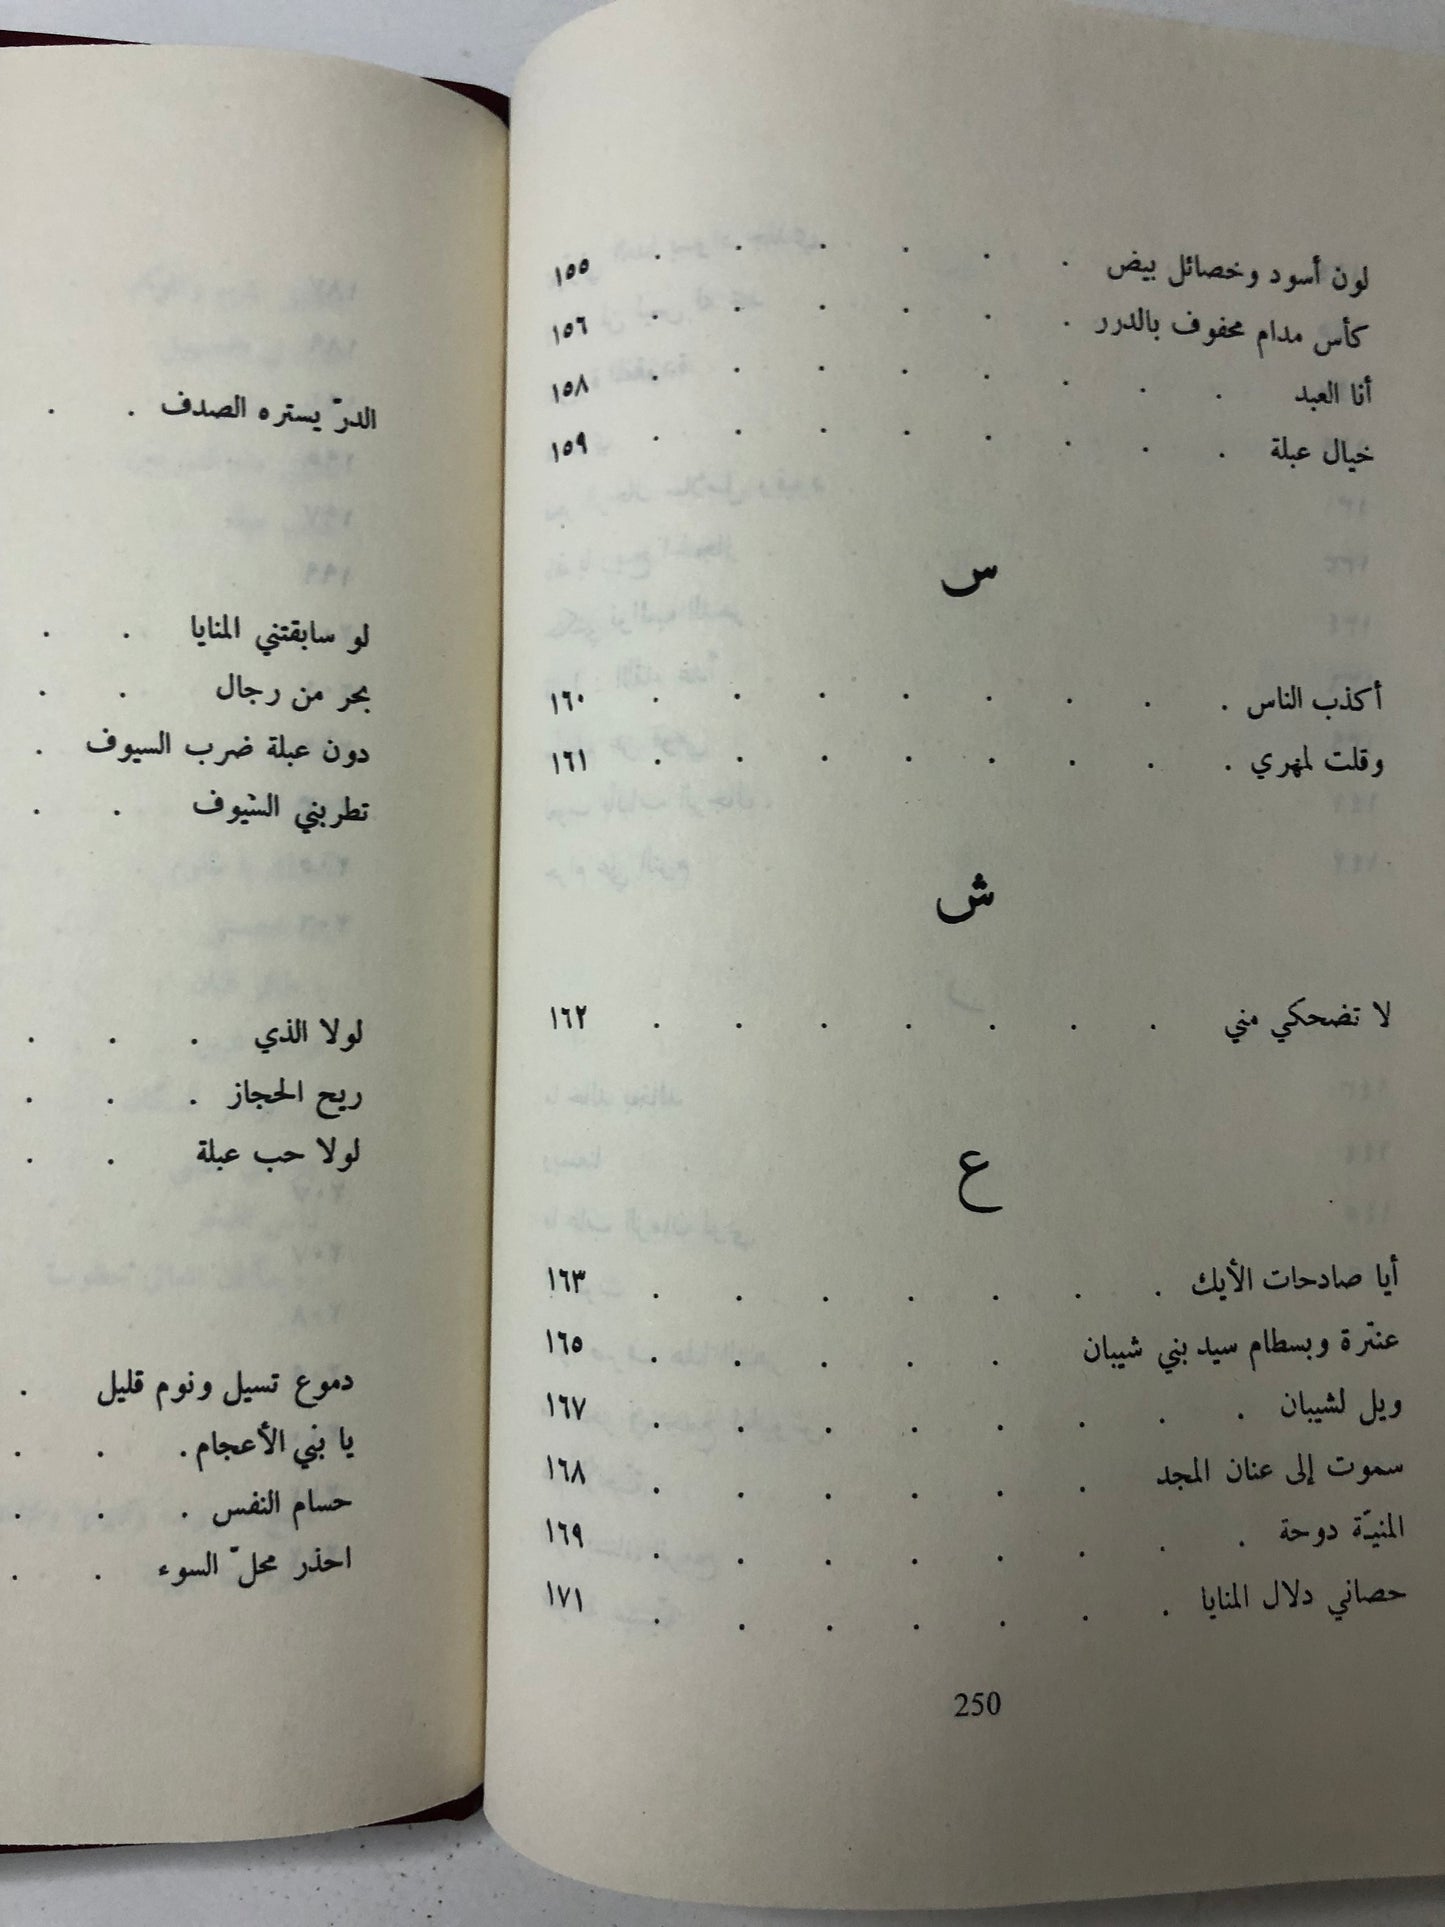 لون أسود وخصائل بيض . . . . . . ١٥٥
كأس مدام محفوف بالدرر . . . . . . ١٥٦
أنا العبد . . . . . . . . ١٥٨
خيال عبلة . . . . . . . . ١٥٩
س
أكذب الناس . . . . . . . . ١٦٠
وقلت لمهري . . . . . . . . ١٦١
ش
لا تضحكي مني . . . . . . . ١٦٢
ع
أيا صادحات الأيك . . . . . . . ١٦٣
عنترة وبسطام سيد بني شيبان . . . . . ١٦٥
ويل لشيبان . . . . . . . . ١٦٧
سموت إلى عنان المجد . . . . . . ١٦٨
المنيّة دوحة . . . . . . . . ١٦٩
حصاني دلال المنايا . . . . . . . ١٧١
250
الدرّ يستره الصدف . .
لو سابقتني المنايا . .
بحر من رجال . .
دون عبلة ضرب السيوف .
تطربني السّيوف . .
لولا الذي . . .
ريح الحجاز . . .
لولا حب عبلة . .
دموع تسيل ونوم قليل .
يا بني الأعجام . . .
حسام النفس . . .
احذر محلّ السوء . .